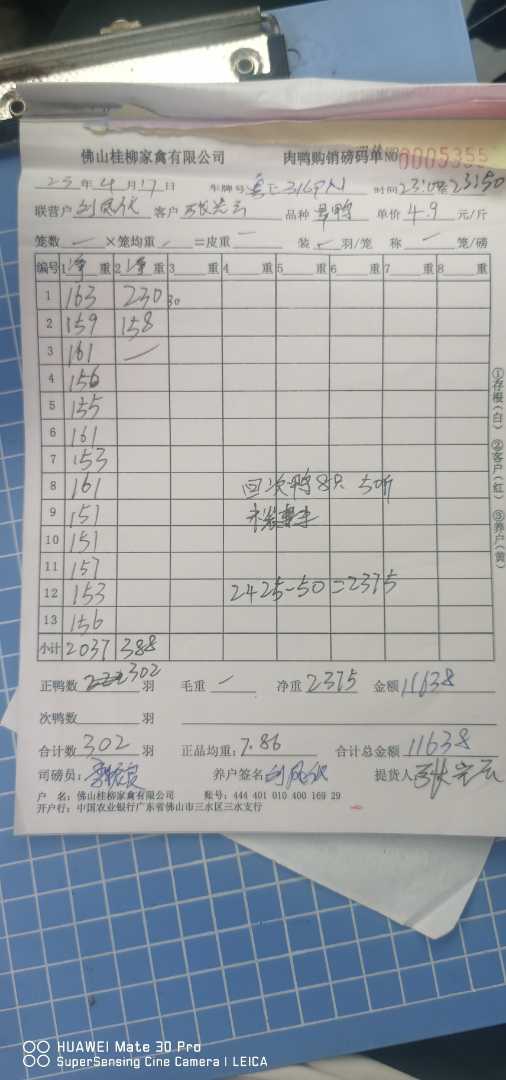 佛山桂柳家禽有限公司 肉鸭购销磅码单 NO 0005355
25年4月17日 车牌号 时间 23:50
联营户 客户 品种 鸭 单价 4.9 元/斤
笼数 — ×笼均重 — =皮重 — 装 羽/笼 称 — 笼/磅
编号 1净重 2净重 3 重 4 重 5 重 6 重 7 重 8 重
1 163 230 30
2 159 158
3 161 —
4 156
5 155
6 161
7 153
8 161 回次鸭8只 50斤
9 151
10 151
11 157
12 153 2425-50=2375
13 156
小计 2037 388
正鸭数 302 羽 毛重 — 净重 2375 金额 11638
次鸭数 羽
合计数 302 羽 正品均重: 7.86 合计总金额 11638
司磅员: 养户签名 提货人
户 名: 佛山桂柳家禽有限公司 账号: 444 401 010 400 169 29
开户行: 中国农业银行广东省佛山市三水区三水支行
①存根(白) ②客户(红) ③养户(黄)
HUAWEI Mate 30 Pro
SuperSensing Cine Camera | LEICA